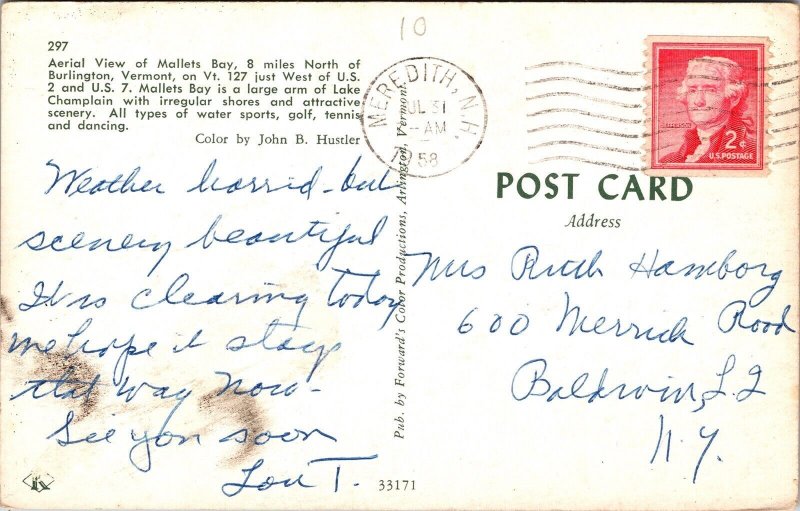 10
297
Aerial View of Mallets Bay, 8 miles North of
Burlington, Vermont, on Vt. 127 just West of U.S.
2 and U.S. 7. Mallets Bay is a large arm of Lake
Champlain with irregular shores and attractive
scenery. All types of water sports, golf, tennis
and dancing.
Color by John B. Hustler
MEREDITH, N.H.
JUL 31
-AM
1958
2¢
U.S. POSTAGE
POST CARD
Address
Weather horrid - but
scenery beautiful
It is clearing today
we hope it stays
that way now -
See you soon
Lou T.
Pub. by Forward's Color Productions, Arlington, Vermont.
Mrs Ruth Hamborg
600 Merrick Road
Baldwin, L.I.
N.Y.
33171